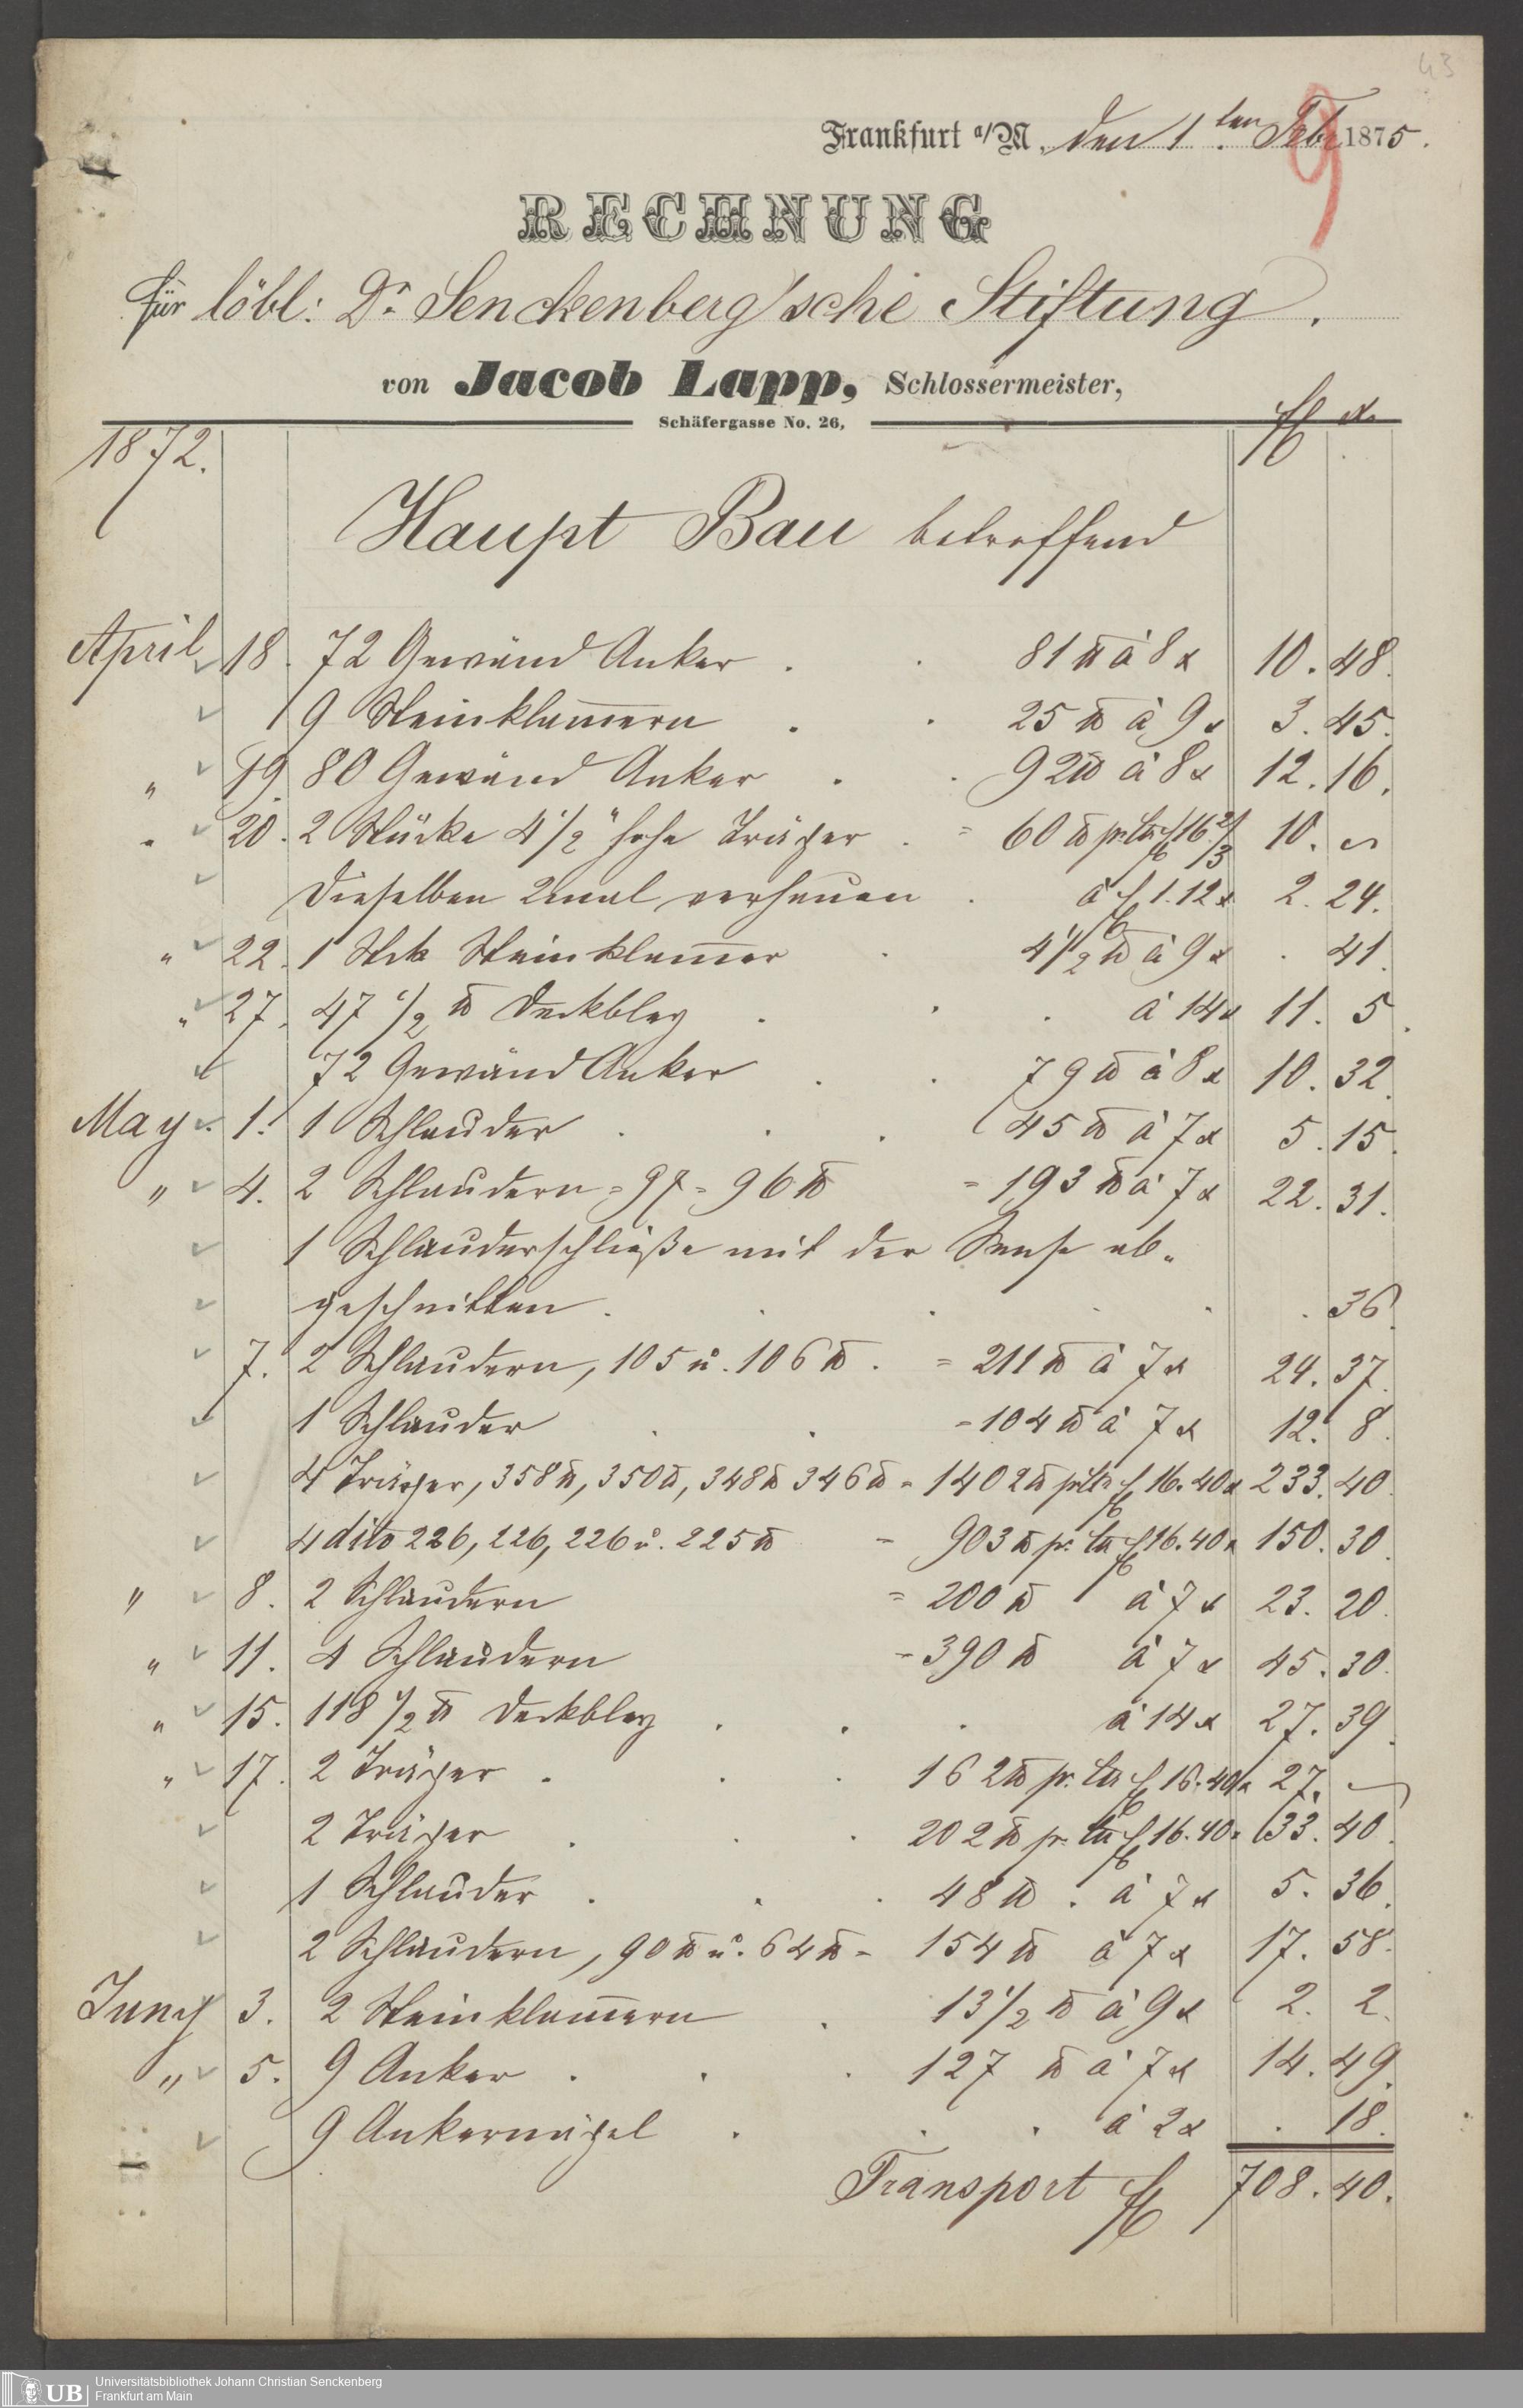 43
Frankfurt a/M, den 1ten Febr 1875.
9
RECHNUNG
für löbl: Dr Senckenberg'sche Stiftung.
von Jacob Lapp, Schlossermeister,
Schäfergasse No. 26,
1872. fl x.
Haupt Bau betreffend
April 18. 72 Gewänd Anker . . 81 ℔ à 8 x 10. 48.
19 Steinklam̅ern . . 25 ℔ à 9 x 3. 45.
" 19 80 Gewänd Anker . . 92 ℔ à 8 x 12. 16.
" 20. 2 Stücke 4 1/2" hohe Träger . = 60 ℔ pr. Ctr fl 16 2/3 10. –
Dieselben 2mal verhauen . à fl 1.12 x 2. 24.
" 22. 1 Stck Steinklam̅er . 4 1/2 ℔ à 9 x . 41.
" 27. 47 1/2 ℔ Deckbley . . . à 14 x 11. 5.
72 Gewänd Anker . . 79 ℔ à 8 x 10. 32.
May. 1. 1 Schlauder . . . 45 ℔ à 7 x 5. 15.
" 4. 2 Schlaudern = 97 = 96 ℔ = 193 ℔ à 7 x 22. 31.
1 Schlauderschließe mit der Sense ab-
geschnitten . . . . . . 36.
7. 2 Schlaudern, 105 u. 106 ℔. = 211 ℔ à 7 x 24. 37.
1 Schlauder . . = 104 ℔ à 7 x 12. 8.
4 Träger, 358 ℔, 350 ℔, 348 ℔ 346 ℔ = 1402 ℔ pr Ctr fl 16. 40 x 233. 40.
4 dito 226, 226, 226 u. 225 ℔ = 903 ℔ pr. Ctr fl 16. 40 x 150. 30.
" 8. 2 Schlaudern = 200 ℔ à 7 x 23. 20.
" 11. 4 Schlaudern = 390 ℔ à 7 x 45. 30.
" 15. 118 1/2 ℔ Deckbley . . . à 14 x 27. 39.
" 17. 2 Träger . . . 162 ℔ pr. Ctr fl 16. 40 x 27. –
2 Träger . . . 202 ℔ pr. Ctr fl 16. 40 x 33. 40.
1 Schlauder . . . 48 ℔ . à 7 x 5. 36.
2 Schlaudern, 90 ℔ u. 64 ℔ = 154 ℔ à 7 x 17. 58.
Juny 3. 2 Steinklam̅ern . 13 1/2 ℔ à 9 x 2. 2.
" 5. 9 Anker . . . 127 ℔ à 7 x 14. 49.
9 Ankernägel . . . à 2 x . 18.
Transport fl 708. 40.
UB
Universitätsbibliothek Johann Christian Senckenberg
Frankfurt am Main